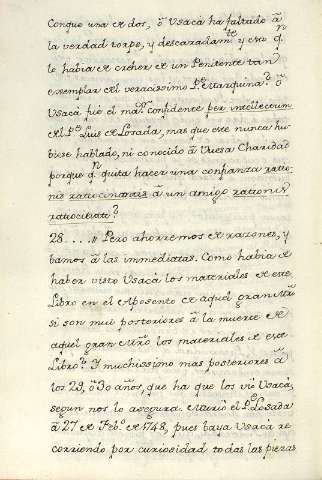 Conque una de dos, ō Usacà ha faltado ā
la verdad torpe, y descaradam.te y esto q.n
lo habia de creher de un Penitente tan
exemplar del veracissimo P.e Marquina? ō
Usacà fuè el ma.r confidente per intellectum
del P.e Luis de Losada, mas que este nunca hu-
biese hablado, ni conocido ā Vuesa Charidad
porque q.n quita hacer una confianza ratio-
nis ratiocinantis ā un amigo rationis
ratiocinati?
28 .... Pero ahorremos de razones, y
vamos ā las immediatas. Como habia de
haber visto Usacà los materiales de este
Libro en el Aposento de aquel gran Mro
si son mui posteriores ā la muerte de
aquel gran Mro los materiales de este
Libro? Y muchissimo mas posteriores ā
los 29, ō 30 años, que ha que los viò Usacà,
segun nos lo asegura. Muriò el P.e Losada
ā 27 de Feb.o de 1748, pues vaya Usacà re-
corriendo por curiosidad todas las piezas